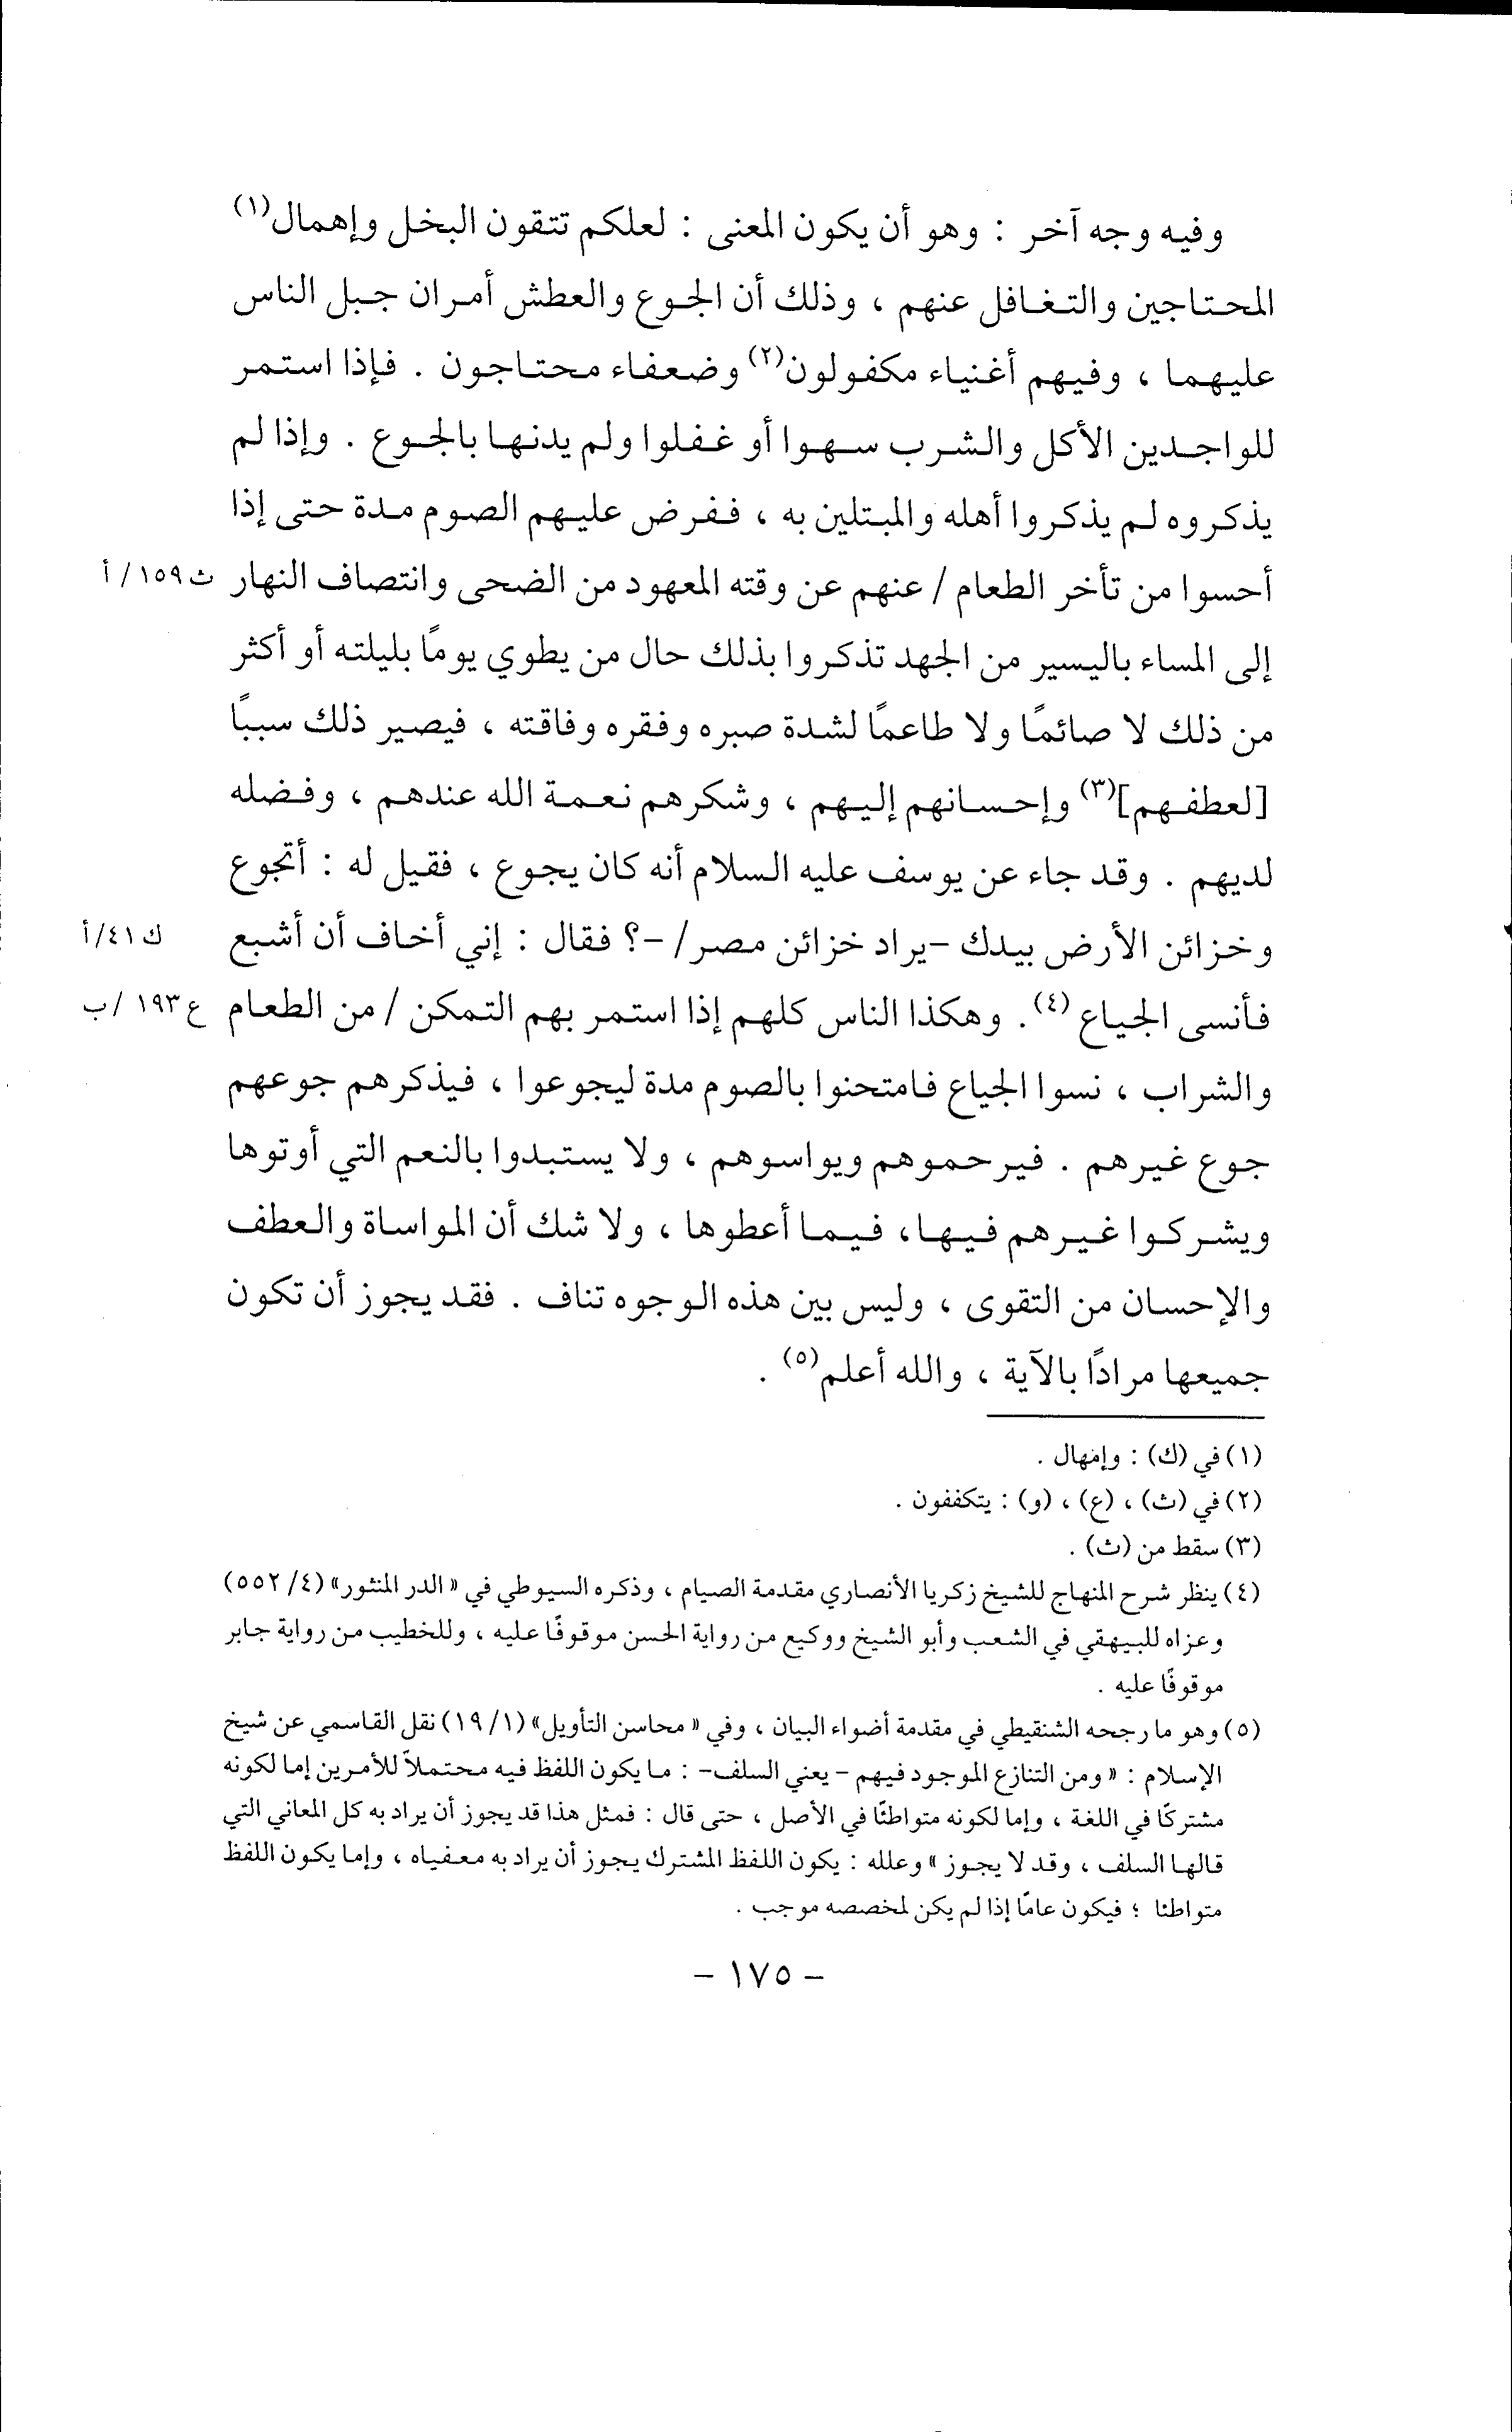 وفيه وجه آخر : وهو أن يكون المعنى : لعلكم تتقون البخل وإهمال(١)
المحتاجين والتغافل عنهم ، وذلك أن الجوع والعطش أمران جبل الناس
عليهما ، وفيهم أغنياء مكفولون(٢) وضعفاء محتاجون . فإذا استمر
للواجدين الأكل والشرب سهوا أو غفلوا ولم يدنها بالجوع . وإذا لم
يذكروه لم يذكروا أهله والمبتلين به ، ففرض عليهم الصوم مدة حتى إذا
أحسوا من تأخر الطعام / عنهم عن وقته المعهود من الضحى وانتصاف النهار ث ١٥٩/ أ
إلى المساء باليسير من الجهد تذكروا بذلك حال من يطوي يومًا بليلته أو أكثر
من ذلك لا صائمًا ولا طاعمًا لشدة صبره وفقره وفاقته ، فيصير ذلك سببًا
[لعطفهم](٣) وإحسانهم إليهم ، وشكرهم نعمة الله عندهم ، وفضله
لديهم . وقد جاء عن يوسف عليه السلام أنه كان يجوع ، فقيل له : أتجوع
وخزائن الأرض بيدك -يراد خزائن مصر/ -؟ فقال : إني أخاف أن أشبع ك ٤١/أ
فأنسى الجياع (٤). وهكذا الناس كلهم إذا استمر بهم التمكن / من الطعام ع ١٩٣ /ب
والشراب ، نسوا الجياع فامتحنوا بالصوم مدة ليجوعوا ، فيذكرهم جوعهم
جوع غيرهم . فيرحموهم ويواسوهم ، ولا يستبدوا بالنعم التي أوتوها
ويشركوا غيرهم فيها، فيما أعطوها ، ولا شك أن المواساة والعطف
والإحسان من التقوى ، وليس بين هذه الوجوه تناف . فقد يجوز أن تكون
جميعها مرادًا بالآية ، والله أعلم(٥) .
(١) في (ك) : وإمهال .
(٢) في (ث) ، (ع) ، (و) : يتكففون .
(٣) سقط من (ث) .
(٤) ينظر شرح المنهاج للشيخ زكريا الأنصاري مقدمة الصيام ، وذكره السيوطي في « الدر المنثور» (٤/ ٥٥٢)
وعزاه للبيهقي في الشعب وأبو الشيخ ووكيع من رواية الحسن موقوفًا عليه ، وللخطيب من رواية جابر
موقوفًا عليه .
(٥) وهو ما رجحه الشنقيطي في مقدمة أضواء البيان ، وفي « محاسن التأويل» (١٩/١) نقل القاسمي عن شيخ
الإسلام : « ومن التنازع الموجود فيهم - يعني السلف- : ما يكون اللفظ فيه محتملاً للأمرين إما لكونه
مشتركًا في اللغة ، وإما لكونه متواطئًا في الأصل ، حتى قال : فمثل هذا قد يجوز أن يراد به كل المعاني التي
قالها السلف ، وقد لا يجوز » وعلله : يكون اللفظ المشترك يجوز أن يراد به معفياه ، وإما يكون اللفظ
متواطئا ؛ فيكون عامًا إذا لم يكن لمخصصه موجب .
- ١٧٥ -